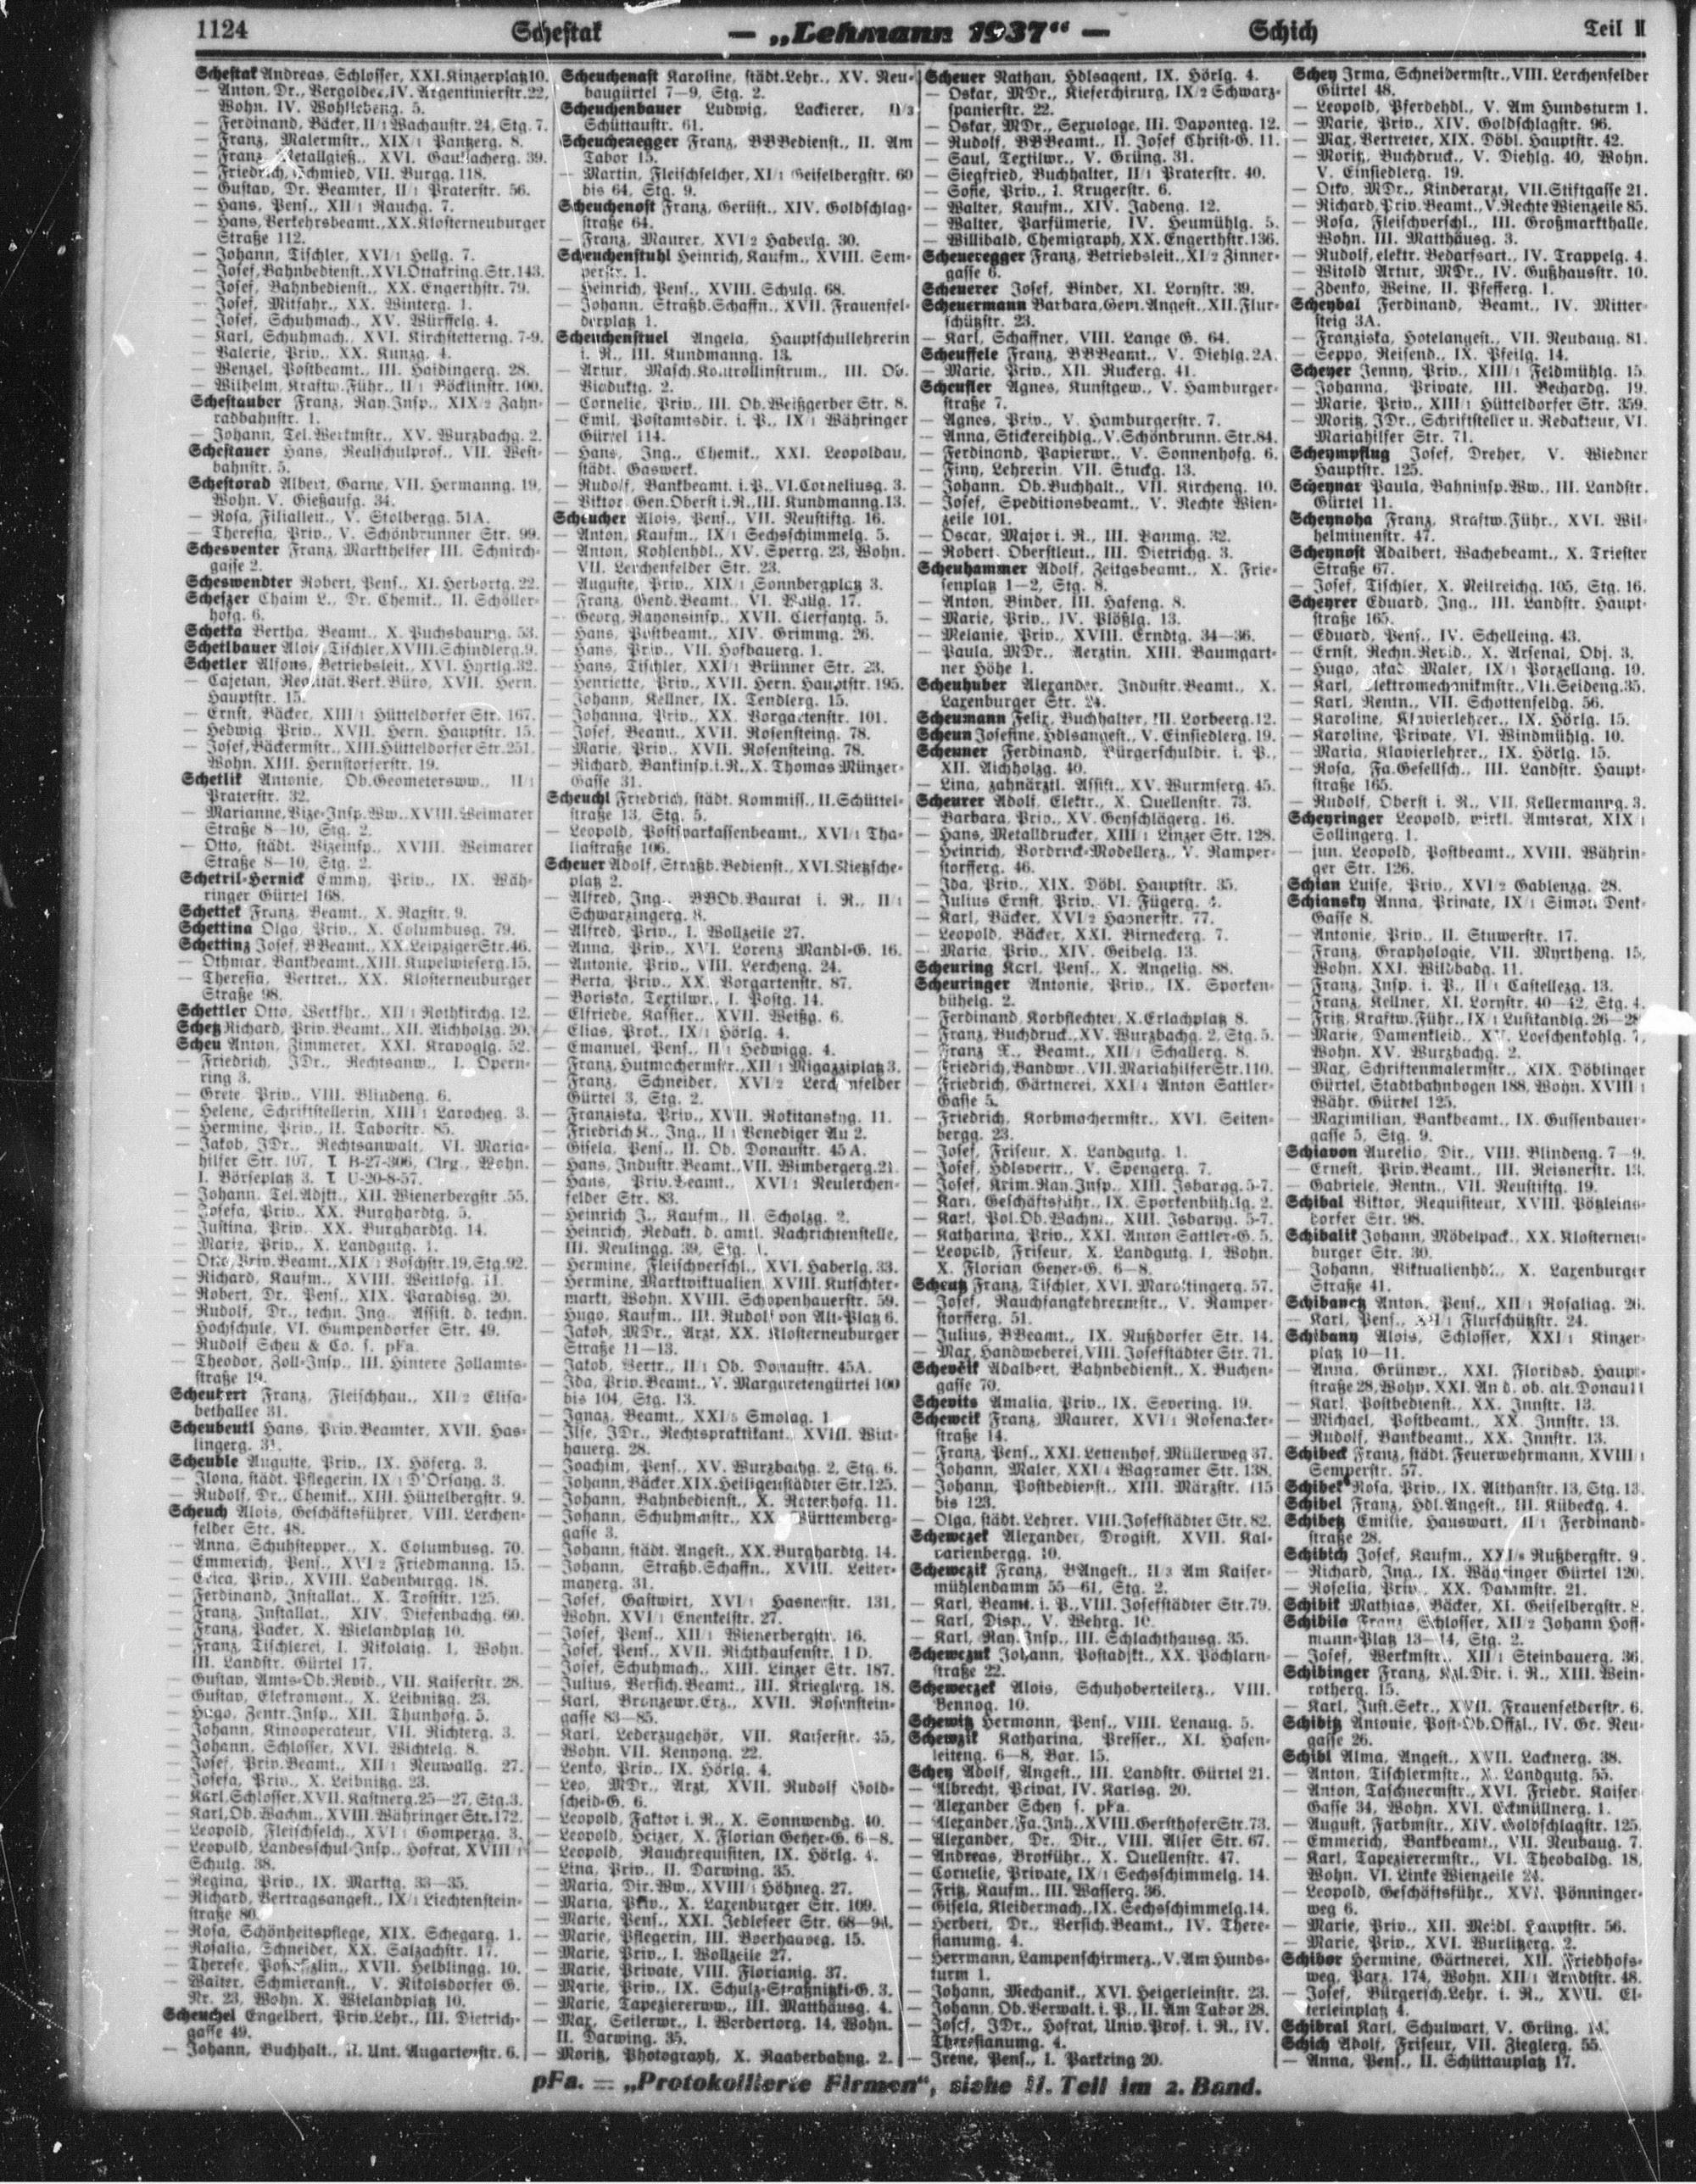 1124 Schestak — „Lehmann 1937“ — Schich Teil II
Schestak Andreas, Schlosser, XXI.Kinzerplatz10.
— Anton, Dr., Vergolder, IV. Argentinierstr.22,
Wohn. IV. Wohllebeng. 5.
— Ferdinand, Bäcker, II/1 Wachaustr. 24, Stg. 7.
— Franz, Malermstr., XIX/1 Pantzerg. 8.
— Franz, Metallgieß., XVI. Gaullacherg. 39.
— Friedrich, Schmied, VII. Burgg. 118.
— Gustav, Dr. Beamter, II/1 Praterstr. 56.
— Hans, Pens., XII/1 Rauchg. 7.
— Hans, Verkehrsbeamt., XX. Klosterneuburger
Straße 112.
— Johann, Tischler, XVI/1 Hellg. 7.
— Josef, Bahnbedienst., XVI.Ottakring.Str.143.
— Josef, Bahnbedienst., XX. Engerthstr. 79.
— Josef, Mitfahr., XX. Winterg. 1.
— Josef, Schuhmach., XV. Würffelg. 4.
— Karl, Schuhmach., XVI. Kirchstetterng. 7-9.
— Valerie, Priv., XX. Kunzg. 4.
— Wenzel, Postbeamt., III. Haidingerg. 28.
— Wilhelm, Kraftw.Führ., II/1 Böcklinstr. 100.
Schestauber Franz, Ray.Insp., XIX/2 Zahn-
radbahnstr. 1.
— Johann, Tel.Werkmstr., XV. Wurzbachg. 2.
Schestauer Hans, Realschulprof., VII. West-
bahnstr. 5.
Schestorad Albert, Garne, VII. Hermanng. 19,
Wohn. V. Gießaufg. 34.
— Rosa, Filialleit., V. Stolbergg. 51A.
— Theresia, Priv., V. Schönbrunner Str. 99.
Schesventer Franz, Markthelfer, III. Schnirch-
gasse 2.
Scheswendter Robert, Pens., XI. Herbortg. 22.
Scheszer Chaim L., Dr. Chemik., II. Schöller-
hofg. 6.
Schetka Bertha, Beamt., X. Puchsbaumg. 53.
Schetlbauer Alois, Tischler, XVIII.Schindlerg.9.
Schetler Alfons, Betriebsleit., XVI. Hyrtlg.32.
— Cajetan, Realität.Verk.Büro, XVII. Hern.
Hauptstr. 15.
— Ernst, Bäcker, XIII/1 Hütteldorfer Str. 167.
— Hedwig, Priv., XVII. Hern. Hauptstr. 15.
— Josef, Bäckermstr., XIII.Hütteldorfer Str.251.
Wohn. XIII. Hernstorferstr. 19.
Schetlik Antonie, Ob.Geometersww., II/1
Praterstr. 32.
— Marianne, Vize-Insp.Ww., XVIII.Weimarer
Straße 8—10, Stg. 2.
— Otto, städt. Vizeinsp., XVIII. Weimarer
Straße 8—10, Stg. 2.
Schetril-Hernick Emmy, Priv., IX. Wäh-
ringer Gürtel 168.
Schettek Franz, Beamt., X. Raxstr. 9.
Schettina Olga, Priv., X. Columbusg. 79.
Schettinz Josef, BBeamt., XX.LeipzigerStr.46.
— Othmar, Bankbeamt., XIII. Kupelwieserg.15.
— Theresia, Vertret., XX. Klosterneuburger
Straße 98.
Schettler Otto, Werkfhr., XII/1 Rothkirchg. 12.
Schetz Richard, Priv.Beamt., XII. Aichholzg. 20.
Scheu Anton, Zimmerer, XXI. Kravoglg. 52.
— Friedrich, JDr., Rechtsanw., I. Opern-
ring 3.
— Grete, Priv., VIII. Blindeng. 6.
— Helene, Schriftstellerin, XIII/1 Larocheg. 3.
— Hermine, Priv., II. Taborstr. 85.
— Jakob, JDr., Rechtsanwalt, VI. Maria-
hilfer Str. 107, T B-27-306, Clrg., Wohn.
I. Börseplatz 3. T U-20-8-57.
— Johann, Tel.Adjkt., XII. Wienerbergstr.55.
— Josefa, Priv., XX. Burghardtg. 5.
— Justina, Priv., XX. Burghardtg. 14.
— Marie, Priv., X. Landgutg. 1.
— Otto, Priv.Beamt., XIX/1 Boschstr.19,Stg.92.
— Richard, Kaufm., XVIII. Weitlofg. 11.
— Robert, Dr. Pens., XIX. Paradisg. 20.
— Rudolf, Dr., techn. Ing., Assist. d. techn.
Hochschule, VI. Gumpendorfer Str. 49.
— Rudolf Scheu & Co. s. pFa.
— Theodor, Zoll-Insp., III. Hintere Zollamts-
straße 19.
Scheubert Franz, Fleischhau., XII/2 Elisa-
bethallee 31.
Scheubeutl Hans, Priv.Beamter, XVII. Has-
lingerg. 31.
Scheuble Auguste, Priv., IX. Höferg. 3.
— Ilona, städt. Pflegerin, IX/1 D'Orsayg. 3.
— Rudolf, Dr., Chemik., XIII. Hüttelbergstr. 9.
Scheuch Alois, Geschäftsführer, VIII. Lerchen-
felder Str. 48.
— Anna, Schuhstepper., X. Columbusg. 70.
— Emmerich, Pens., XVI/2 Friedmanng. 15.
— Erica, Priv., XVIII. Ladenburgg. 18.
— Ferdinand, Installat., X. Troststr. 125.
— Franz, Installat., XIV. Diefenbachg. 60.
— Franz, Packer, X. Wielandplatz 10.
— Franz, Tischlerei, I. Nikolaig. 1, Wohn.
III. Landstr. Gürtel 17.
— Gustav, Amts-Ob.Revid., VII. Kaiserstr. 28.
— Gustav, Elekromont., X. Leibnitzg. 23.
— Hugo, Zentr.Insp., XII. Thunhofg. 5.
— Johann, Kinooperateur, VII. Richterg. 3.
— Johann, Schlosser, XVI. Wichtelg. 8.
— Josef, Priv.Beamt., XII/1 Neuwallg. 27.
— Josefa, Priv., X. Leibnitzg. 23.
— Karl, Schlosser, XVII. Kastnerg.25—27, Stg.3.
— Karl, Ob.Wachm., XVIII. Währinger Str.172.
— Leopold, Fleischselch., XVI/1 Gomperzg. 3.
— Leopold, Landesschul-Insp., Hofrat, XVIII/1
Schulg. 38.
— Regina, Priv., IX. Marktg. 33—35.
— Richard, Vertragsangest., IX/1 Liechtenstein-
straße 80.
— Rosa, Schönheitspflege, XIX. Schegarg. 1.
— Rosalia, Schneider, XX. Salzachstr. 17.
— Therese, XVII. Helblingg. 10.
— Walter, Schmieranst., V. Nikolsdorfer G.
Nr. 23, Wohn. X. Wielandplatz 10.
Scheuchel Engelbert, Priv.Lehr., III. Dietrich-
gasse 49.
— Johann, Buchhalt., II. Unt. Augartenstr. 6.
Scheuchenast Karoline, städt.Lehr., XV. Neu-
baugürtel 7—9, Stg. 2.
Scheuchenbauer Ludwig, Lackierer, II/3
Schüttaustr. 61.
Scheuchenegger Franz, BBBedienst., II. Am
Tabor 15.
— Martin, Fleischselcher, XI/1 Geiselbergstr. 60
bis 64, Stg. 9.
Scheuchenost Franz, Gerüst., XIV. Goldschlag-
straße 64.
— Franz, Maurer, XVI/2 Haberlg. 30.
Scheuchenstuhl Heinrich, Kaufm., XVIII. Sem-
perstr. 1.
— Heinrich, Pens., XVIII. Schulg. 68.
— Johann, Straßb.Schaffn., XVII. Frauenfel-
derplatz 1.
Scheuchenstuel Angela, Hauptschullehrerin
i. R., III. Kundmanng. 13.
— Artur, Masch.Kontrollinstrum., III. Ob.
Viaduktg. 2.
— Cornelie, Priv., III. Ob.Weißgerber Str. 8.
— Emil, Postamtsdir. i. P., IX/1 Währinger
Gürtel 114.
— Hans, Ing., Chemik., XXI. Leopoldau,
städt. Gaswerk.
— Rudolf, Bankbeamt. i.P., VI.Corneliusg. 3.
— Viktor, Gen.Oberst i.R., III. Kundmanng.13.
Scheucher Alois, Pens., VII. Neustiftg. 16.
— Anton, Kaufm., IX/1 Sechsschimmelg. 5.
— Anton, Kohlenhdl., XV. Sperrg. 23, Wohn.
VII. Lerchenfelder Str. 23.
— Auguste, Priv., XIX/1 Sonnbergplatz 3.
— Franz, Gend.Beamt., VI. Wallg. 17.
— Georg, Rayonsinsp., XVII. Clerfaytg. 5.
— Hans, Postbeamt., XIV. Grimmg. 26.
— Hans, Priv., VII. Hofbauerg. 1.
— Hans, Tischler, XXI/1 Brünner Str. 23.
— Henriette, Priv., XVII. Hern. Hauptstr. 195.
— Johann, Kellner, IX. Tendlerg. 15.
— Johanna, Priv., XX. Vorgartenstr. 101.
— Josef, Beamt., XVII. Rosensteing. 78.
— Marie, Priv., XVII. Rosensteing. 78.
— Richard, Bankinsp.i.R., X. Thomas Münzer-
Gasse 31.
Scheuchl Friedrich, städt. Kommiss., II.Schüttel-
straße 13, Stg. 5.
— Leopold, Postsparkassenbeamt., XVI/1 Tha-
liastraße 106.
Scheuer Adolf, Straßb.Bedienst., XVI.Nietzsche-
platz 2.
— Alfred, Ing., BBOb.Baurat i. R., II/1
Schwarzingerg. 8.
— Alfred, Priv., I. Wollzeile 27.
— Anna, Priv., XVI. Lorenz Mandl-G. 16.
— Antonie, Priv., VIII. Lercheng. 24.
— Berta, Priv., XX. Vorgartenstr. 87.
— Boriska, Textilwr., I. Postg. 14.
— Elfriede, Kassier., XVII. Weißg. 6.
— Elias, Prok., IX/1 Hörlg. 4.
— Emanuel, Pens., II/1 Hedwigg. 4.
— Franz, Hutmachermstr., XII/1 Migazziplatz 3.
— Franz, Schneider, XVI/2 Lerchenfelder
Gürtel 3, Stg. 2.
— Franziska, Priv., XVII. Rokitanskyg. 11.
— Friedrich K., Ing., II/1 Venediger Au 2.
— Gisela, Pens., II. Ob. Donaustr. 45A.
— Hans, Industr.Beamt., VII. Wimbergerg.21.
— Hans, Priv.Beamt., XVI/1 Neulerchen-
felder Str. 83.
— Heinrich J., Kaufm., II. Scholzg. 2.
— Heinrich, Redakt. d. amtl. Nachrichtenstelle,
III. Neulingg. 39, Stg. 1.
— Hermine, Fleischverschl., XVI. Haberlg. 33.
— Hermine, Marktviktualien, XVIII. Kutschker-
markt, Wohn. XVIII. Schopenhauerstr. 59.
— Hugo, Kaufm., III. Rudolf von Alt-Platz 6.
— Jakob, MDr., Arzt, XX. Klosterneuburger
Straße 11—13.
— Jakob, Vertr., II/1 Ob. Donaustr. 45A.
— Ida, Priv.Beamt., V. Margaretengürtel 100
bis 104, Stg. 13.
— Ignaz, Beamt., XXI/5 Smolag. 1.
— Ilse, JDr., Rechtspraktikant, XVIII. Witt-
hauerg. 28.
— Joachim, Pens., XV. Wurzbachg. 2, Stg. 6.
— Johann, Bäcker, XIX.Heiligenstädter Str.125.
— Johann, Bahnbedienst., X. Rotenhofg. 11.
— Johann, Schuhmmstr., XX. Württemberg-
gasse 3.
— Johann, städt. Angest., XX. Burghardtg. 14.
— Johann, Straßb.Schaffn., XVIII. Leiter-
mayerg. 31.
— Josef, Gastwirt, XVI/1 Hasnerstr. 131,
Wohn. XVI/1 Enenkelstr. 27.
— Josef, Pens., XII/1 Wienerbergstr. 16.
— Josef, Pens., XVII. Richthausenstr. 1 D.
— Josef, Schuhmach., XIII. Linzer Str. 187.
— Julius, Versich.Beamt., III. Krieglerg. 18.
— Karl, Bronzewr.Erz., XVII. Rosenstein-
gasse 83—85.
— Karl, Lederzugehör, VII. Kaiserstr. 45,
Wohn. VII. Kenyong. 22.
— Lenko, Priv., IX. Hörlg. 4.
— Leo, MDr., Arzt, XVII. Rudolf Gold-
scheid-G. 6.
— Leopold, Faktor i. R., X. Sonnwendg. 40.
— Leopold, Heizer, X. Florian Geyer-G. 6—8.
— Leopold, Rauchrequisiten, IX. Hörlg. 4.
— Lina, Priv., II. Darwing. 35.
— Maria, Dir.Ww., XVIII/1 Höhneg. 27.
— Maria, Priv., X. Laxenburger Str. 109.
— Marie, Pens., XXI. Jedleseer Str. 68—94.
— Marie, Pflegerin, III. Boerhaaveg. 15.
— Marie, Priv., I. Wollzeile 27.
— Marie, Private, VIII. Florianig. 37.
— Marie, Priv., IX. Schulz-Straßnitzki-G. 3.
— Marie, Tapeziererww., III. Matthäusg. 4.
— Max, Seilerwr., I. Werdertorg. 14, Wohn.
II. Darwing. 35.
— Moritz, Photograph, X. Raaberbahng. 2.
Scheuer Nathan, Hdlsagent, IX. Hörlg. 4.
— Oskar, MDr., Kieferchirurg, IX/2 Schwarz-
spanierstr. 22.
— Oskar, MDr., Sexuologe, III. Daponteg. 12.
— Rudolf, BBBeamt., II. Josef Christ-G. 11.
— Saul, Textilwr., V. Grüng. 31.
— Siegfried, Buchhalter, II/1 Praterstr. 40.
— Sofie, Priv., I. Krugerstr. 6.
— Walter, Kaufm., XIV. Jadeng. 12.
— Walter, Parfümerie, IV. Heumühlg. 5.
— Willibald, Chemigraph, XX. Engerthstr.136.
Scheueregger Franz, Betriebsleit., XI/2 Zinner-
gasse 6.
Scheuerer Josef, Binder, XI. Lorystr. 39.
Scheuermann Barbara, Gem.Angest., XII.Flur-
schützstr. 23.
— Karl, Schaffner, VIII. Lange G. 64.
Scheuffele Franz, BBBeamt., V. Diehlg.2A.
— Marie, Priv., XII. Ruckerg. 41.
Scheufler Agnes, Kunstgew., V. Hamburger-
straße 7.
— Agnes, Priv., V. Hamburgerstr. 7.
— Anna, Stickereihdlg., V.Schönbrunn.Str.84.
— Ferdinand, Papierwr., V. Sonnenhofg. 6.
— Finy, Lehrerin, VII. Stuckg. 13.
— Johann, Ob.Buchhalt., VII. Kircheng. 10.
— Josef, Speditionsbeamt., V. Rechte Wien-
zeile 101.
— Oscar, Major i. R., III. Baumg. 32.
— Robert, Oberstleut., III. Dietrichg. 3.
Scheuhammer Adolf, Zeitgsbeamt., X. Frie-
senplatz 1—2, Stg. 8.
— Anton, Binder, III. Hafeng. 8.
— Marie, Priv., IV. Plößlg. 13.
— Melanie, Priv., XVIII. Erndtg. 34—36.
— Paula, MDr., Aerztin, XIII. Baumgart-
ner Höhe 1.
Scheuhuber Alexander, Industr.Beamt., X.
Laxenburger Str. 24.
Scheumann Felix, Buchhalter, III. Lorbeerg.12.
Scheun Josefine, Hdlsangest., V. Einsiedlerg. 19.
Scheuner Ferdinand, Bürgerschuldir. i. P.,
XII. Aichholzg. 40.
— Lina, zahnärztl. Assist., XV. Wurmserg. 45.
Scheurer Adolf, Elektr., X. Quellenstr. 73.
— Barbara, Priv., XV. Geyschlägerg. 16.
— Hans, Metalldrucker, XIII/1 Linzer Str. 128.
— Heinrich, Vordruck-Modellerz., V. Ramper-
storfferg. 46.
— Ida, Priv., XIX. Döbl. Hauptstr. 35.
— Julius Ernst, Priv., VI. Fügerg. 4.
— Karl, Bäcker, XVI/2 Hasnerstr. 77.
— Leopold, Bäcker, XXI. Birneckerg. 7.
— Maria, Priv., XIV. Geibelg. 13.
Scheuring Karl, Pens., X. Angelig. 88.
Scheuringer Antonie, Priv., IX. Sporken-
bühelg. 2.
— Ferdinand, Korbflechter, X.Erlachplatz 8.
— Franz, Buchdruck., XV. Wurzbachg. 2, Stg. 5.
— Franz X., Beamt., XII/1 Schallerg. 8.
— Friedrich, Bandwr., VII.MariahilferStr.110.
— Friedrich, Gärtnerei, XXI/4 Anton Sattler-
Gasse 5.
— Friedrich, Korbmachermstr., XVI. Seiten-
bergg. 23.
— Josef, Friseur, X. Landgutg. 1.
— Josef, Hdlsvertr., V. Spengerg. 7.
— Josef, Krim.Ray.Insp., XIII. Isbaryg. 5-7.
— Karl, Geschäftsführ., IX. Sporkenbühelg. 2.
— Karl, Pol.Ob.Wachm., XIII. Isbaryg. 5-7.
— Katharina, Priv., XXI. Anton Sattler-G. 5.
— Leopold, Friseur, X. Landgutg. 1, Wohn.
X. Florian Geyer-G. 6—8.
Scheutz Franz, Tischler, XVI. Maroltingerg. 57.
— Josef, Rauchfangkehrermstr., V. Ramper-
storfferg. 51.
— Julius, BBeamt., IX. Nußdorfer Str. 14.
— Max, Handweberei, VIII. Josefstädter Str. 71.
Schevčik Adalbert, Bahnbedienst., X. Buchen-
gasse 70.
Schevits Amalia, Priv., IX. Severing. 19.
Schewcik Franz, Maurer, XVI/1 Rosenacker-
straße 14.
— Franz, Pens., XXI. Lettenhof, Müllerweg 37.
— Johann, Maler, XXI/4 Wagramer Str. 138.
— Johann, Postbedienst., XIII. Märzstr. 115
bis 123.
— Olga, städt. Lehrer., VIII.Josefstädter Str. 82.
Schewczek Alexander, Drogist, XVII. Kal-
varienbergg. 10.
Schewczik Franz, BAngest., II/3 Am Kaiser-
mühlendamm 55—61, Stg. 2.
— Karl, Beamt. i. P., VIII. Josefstädter Str.79.
— Karl, Disp., V. Wehrg. 10.
— Karl, Ray.Insp., III. Schlachthausg. 35.
Schewczuk Johann, Postadjkt., XX. Pöchlarn-
straße 22.
Scheweczek Alois, Schuhoberteilerz., VIII.
Bennog. 10.
Schewitz Hermann, Pens., VIII. Lenaug. 5.
Schewzik Katharina, Presser., XI. Hasen-
leiteng. 6—8, Bar. 15.
Schey Adolf, Angest., III. Landstr. Gürtel 21.
— Albrecht, Privat, IV. Karlsg. 20.
— Alexander Schey s. pFa.
— Alexander, Fa.Inh., XVIII. GersthoferStr.73.
— Alexander, Dr. Dir., VIII. Alser Str. 67.
— Andreas, Brotführ., X. Quellenstr. 47.
— Cornelie, Private, IX/1 Sechsschimmelg. 14.
— Fritz, Kaufm., III. Wasserg. 36.
— Gisela, Kleidermach., IX. Sechsschimmelg.14.
— Herbert, Dr., Versich.Beamt., IV. There-
sianumg. 4.
— Herrmann, Lampenschirmerz., V. Am Hunds-
turm 1.
— Johann, Mechanik., XVI. Heigerleinstr. 23.
— Johann, Ob.Verwalt. i. P., II. Am Tabor 28.
— Josef, JDr., Hofrat, Univ.Prof. i. R., IV.
Theresianumg. 4.
— Irene, Pens., I. Parkring 20.
Schey Irma, Schneidermstr., VIII. Lerchenfelder
Gürtel 48.
— Leopold, Pferdehdl., V. Am Hundsturm 1.
— Marie, Priv., XIV. Goldschlagstr. 96.
— Max, Vertreter, XIX. Döbl. Hauptstr. 42.
— Moritz, Buchdruck., V. Diehlg. 40, Wohn.
V. Einsiedlerg. 19.
— Otto, MDr., Kinderarzt, VII.Stiftgasse 21.
— Richard, Priv.Beamt., V.Rechte Wienzeile 85.
— Rosa, Fleischverschl., III. Großmarkthalle,
Wohn. III. Matthäusg. 3.
— Rudolf, elektr. Bedarfsart., IV. Trappelg. 4.
— Witold Artur, MDr., IV. Gußhausstr. 10.
— Zdenko, Weine, II. Pfefferg. 1.
Scheybal Ferdinand, Beamt., IV. Mitter-
steig 3A.
— Franziska, Hotelangest., VII. Neubaug. 81.
— Seppo, Reisend., IX. Pfeilg. 14.
Scheyer Jenny, Priv., XIII/1 Feldmühlg. 15.
— Johanna, Private, III. Bechardg. 19.
— Marie, Priv., XIII/1 Hütteldorfer Str. 359.
— Moritz, JDr., Schriftsteller u. Redakteur, VI.
Mariahilfer Str. 71.
Scheympflug Josef, Dreher, V. Wiedner
Hauptstr. 125.
Scheynar Paula, Bahninsp.Ww., III. Landstr.
Gürtel 11.
Scheynoha Franz, Kraftw.Führ., XVI. Wil-
helminenstr. 47.
Scheynost Adalbert, Wachebeamt., X. Triester
Straße 67.
— Josef, Tischler, X. Neilreichg. 105, Stg. 16.
Scheyrer Eduard, Ing., III. Landstr. Haupt-
straße 165.
— Eduard, Pens., IV. Schelleing. 43.
— Ernst, Rechn.Revid., X. Arsenal, Obj. 3.
— Hugo, akad. Maler, IX/1 Porzellang. 19.
— Karl, Elektromechanikmstr., VII.Seideng.35.
— Karl, Rentn., VII. Schottenfeldg. 56.
— Karoline, Klavierlehrer., IX. Hörlg. 15.
— Karoline, Private, VI. Windmühlg. 10.
— Maria, Klavierlehrer., IX. Hörlg. 15.
— Rosa, Fa.Gesellsch., III. Landstr. Haupt-
straße 165.
— Rudolf, Oberst i. R., VII. Kellermanng. 3.
Scheyringer Leopold, wirkl. Amtsrat, XIX/1
Sollingerg. 1.
— jun. Leopold, Postbeamt., XVIII. Währin-
ger Str. 126.
Schian Luise, Priv., XVI/2 Gablenzg. 28.
Schiansky Anna, Private, IX/1 Simon Denk-
Gasse 8.
— Antonie, Priv., II. Stuwerstr. 17.
— Franz, Graphologie, VII. Myrtheng. 15,
Wohn. XXI. Wildbadg. 11.
— Franz, Insp. i. P., II/1 Castellezg. 13.
— Franz, Kellner, XI. Lorystr. 40—42, Stg. 4.
— Fritz, Kraftw.Führ., IX/1 Lustkandlg. 26—28
— Marie, Damenkleid., XV. Loeschenkohlg. 7,
Wohn. XV. Wurzbachg. 2.
— Max, Schriftenmalermstr., XIX. Döblinger
Gürtel, Stadtbahnbogen 188, Wohn. XVIII/1
Währ. Gürtel 125.
— Maximilian, Bankbeamt., IX. Gussenbauer-
gasse 5, Stg. 9.
Schiavon Aurelio, Dir., VIII. Blindeng. 7—9.
— Ernest, Priv.Beamt., III. Reisnerstr. 13.
— Gabriele, Rentn., VII. Neustiftg. 19.
Schibal Viktor, Requisiteur, XVIII. Pötzleins-
dorfer Str. 98.
Schibalik Johann, Möbelpack., XX. Klosterneu-
burger Str. 30.
— Johann, Viktualienhdl., X. Laxenburger
Straße 41.
Schibanetz Anton, Pens., XII/1 Rosaliag. 26.
— Karl, Pens., XII/1 Flurschützstr. 24.
Schibany Alois, Schlosser, XXI/1 Kinzer-
platz 10—11.
— Anna, Grünwr., XXI. Floridsd. Haupt-
straße 28, Wohn. XXI. An d. ob. alt. Donau11
— Karl, Postbedienst., XX. Innstr. 13.
— Michael, Postbeamt., XX. Innstr. 13.
— Rudolf, Bankbeamt., XX. Innstr. 13.
Schibeck Franz, städt. Feuerwehrmann, XVIII/1
Semperstr. 57.
Schibek Rosa, Priv., IX. Althanstr. 13, Stg. 13.
Schibel Franz, Hdl.Angest., III. Kübeckg. 4.
Schibetz Emilie, Hauswart, II/1 Ferdinand-
straße 28.
Schibich Josef, Kaufm., XXI/8 Rußbergstr. 9.
— Richard, Ing., IX. Währinger Gürtel 120.
— Rosalia, Priv., XX. Dammstr. 21.
Schibik Mathias, Bäcker, XI. Geiselbergstr. 8.
Schibila Franz, Schlosser, XII/2 Johann Hoff-
mann-Platz 13—14, Stg. 2.
— Josef, Werkmstr., XII/1 Steinbauerg. 36.
Schibinger Franz, Kzl.Dir. i. R., XIII. Wein-
rotherg. 15.
— Karl, Just.Sekr., XVII. Frauenfelderstr. 6.
Schibitz Antonie, Post-Ob.Offzl., IV. Gr. Neu-
gasse 26.
Schibl Alma, Angest., XVII. Lacknerg. 38.
— Anton, Tischlermstr., X. Landgutg. 55.
— Anton, Taschnermstr., XVI. Friedr. Kaiser-
Gasse 34, Wohn. XVI. Eckmüllnerg. 1.
— August, Farbmstr., XIV. Goldschlagstr. 125.
— Emmerich, Bankbeamt., VII. Neubaug. 7.
— Karl, Tapezierermstr., VI. Theobaldg. 18,
Wohn. VI. Linke Wienzeile 24.
— Leopold, Geschäftsführ., XVI. Pönninger-
weg 6.
— Marie, Priv., XII. Meidl. Hauptstr. 56.
— Marie, Priv., XVI. Wurlitzerg. 2.
Schibor Hermine, Gärtnerei, XII. Friedhofs-
weg, Parz. 174, Wohn. XII/1 Arndtstr. 48.
— Josef, Bürgersch.Lehr. i. R., XVII. El-
terleinplatz 4.
Schibral Karl, Schulwart, V. Grüng. 14.
Schich Adolf, Friseur, VII. Zieglerg. 55.
— Anna, Pens., II. Schüttauplatz 17.
pFa. = „Protokollierte Firmen“, siehe II. Teil im 2. Band.